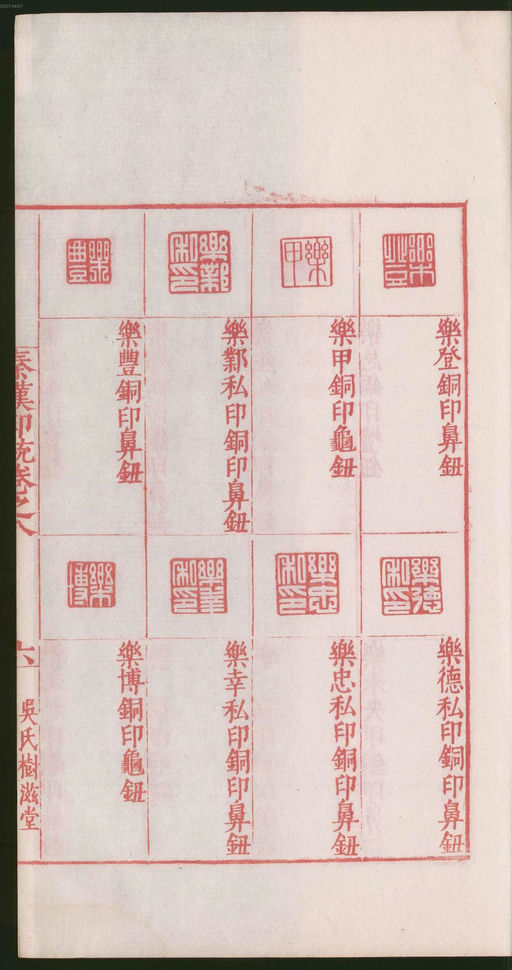 樂登銅印鼻鈕
樂甲銅印龜鈕
樂鄴私印銅印鼻鈕
樂豐銅印鼻鈕
樂德私印銅印鼻鈕
樂忠私印銅印鼻鈕
樂幸私印銅印鼻鈕
樂博銅印龜鈕
秦漢印統卷之八
六
吳氏樹滋堂
00073497